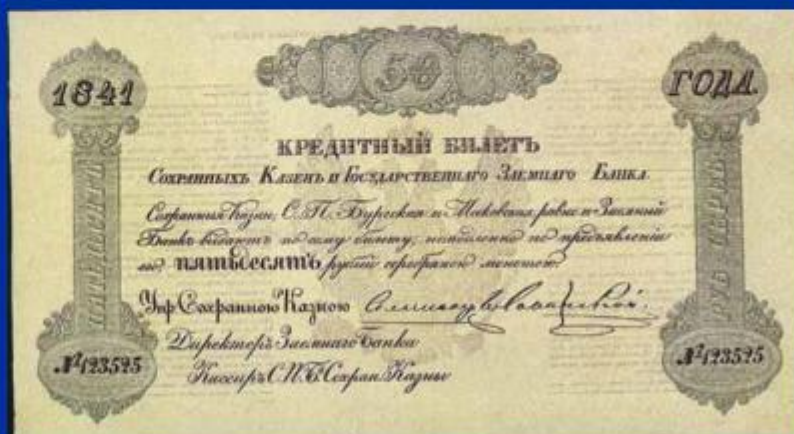 50
1841
ГОДА.
КРЕДИТНЫЙ БИЛЕТЪ
Сохранныхъ Казенъ и Государственнаго Заемнаго Банка
Сохранныя Казны, С.П. Бургская и Московская равно и Заемный
Банкъ выдаютъ по сему билету, немедленно по предъявленіи
пятьдесятъ рублей серебряною монетою.
ПЯТЬДЕСЯТЪ
РУБ. СЕРЕБ.
Упр. Сохранною Казною
Директоръ Заемнаго Банка
Кассиръ С.П.Б. Сохран. Казны
№123525
№123525